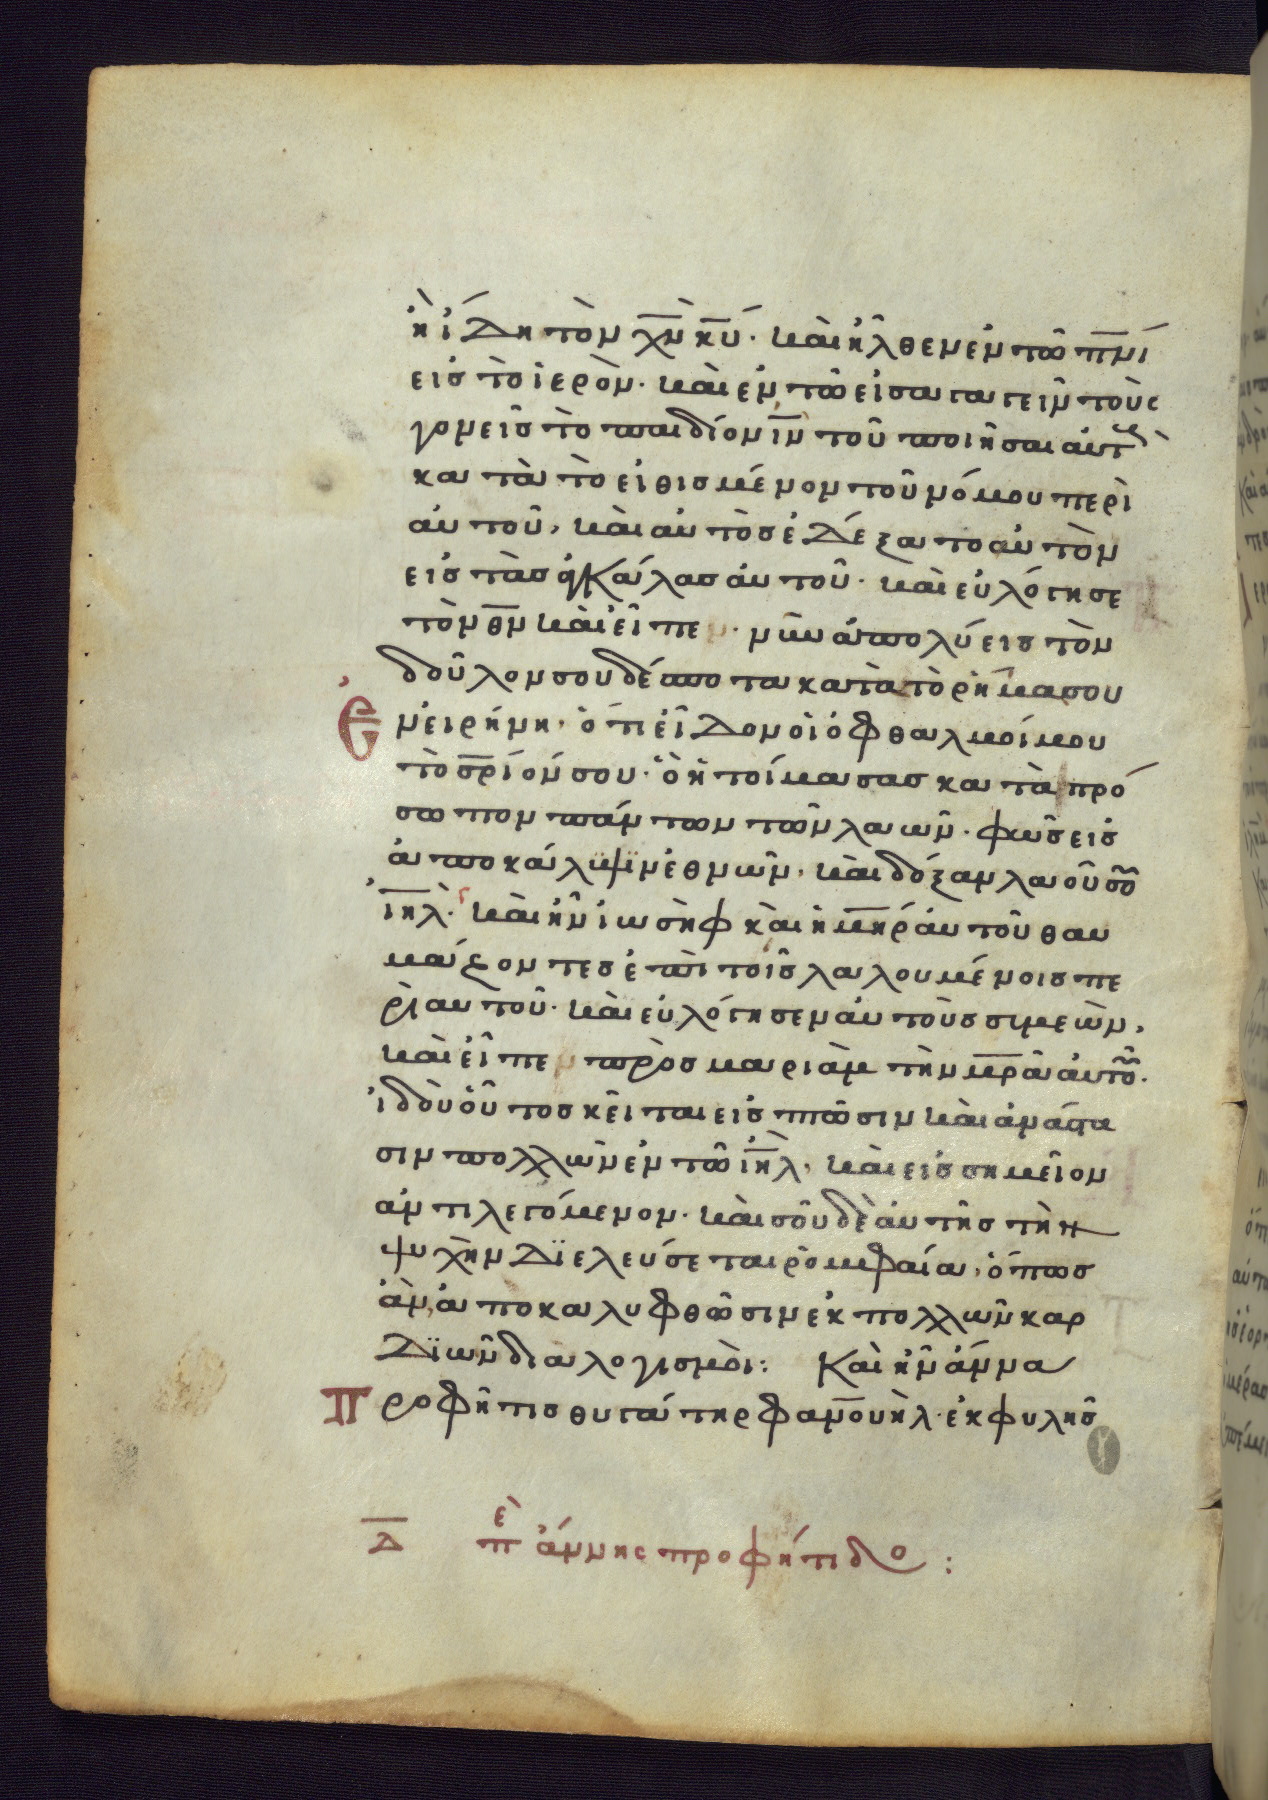 ἢ ἴδη τὸν χ̅ν̅ κ̅υ̅· καὶ ἦλθεν ἐν τῶ π̅ν̅ι̅
εἰς τὸ ἱερόν· καὶ ἐν τῶ εἰσαγαγεῖν τοὺς
γονεῖς τὸ παιδίον ι̅ν̅ τοῦ ποιῆσαι αὐτοὺς
κατὰ τὸ εἰθισμένον τοῦ νόμου περὶ
αὐτοῦ, καὶ αὐτὸς ἐδέξατο αὐτὸν
εἰς τὰς ἀγκάλας αὐτοῦ· καὶ εὐλόγησε
τὸν θ̅ν̅ καὶ εἶπε · νῦν ἀπολύεις τὸν
δοῦλον σου δέσποτα κατὰ τὸ ῥῆμα σου
Ἐν εἰρήνη· ὅτι εἶδον οἱ ὀφθαλμοί μου
τὸ σ̅ρ̅ιόν σου· ὃ ἡτοίμασας κατὰ πρό
σωπον πάντων τῶν λαῶν· φῶς εἰς
ἀποκάλυψϊν ἐθνῶν, καὶ δόξαν λαοῦ σου
ι̅η̅λ̅· καὶ ἦν ἰωσὴφ καὶ ἡ μ̅η̅ρ̅ αὐτοῦ θαυ
μάζοντες ἐπὶ τοῖς λαλουμένοις πε
ρὶ αυτοῦ· καὶ εὐλόγησεν αὐτοὺς συμεὼν,
καὶ εἶπε πρὸς μαριὰμ τὴν μ̅ρ̅α̅ αὐτοῦ·
ἰδοὺ οὗτος κεῖται εἰς πτῶσιν καὶ ἀνάστα
σιν πολλῶν ἐν τῶ ι̅η̅λ̅, καὶ εἰς σημεῖον
ἀντιλεγόμενον· καὶ σοῦ δὲ αὐτῆς τὴν
ψυχὴν δϊελεύσεται ῥομφαία, ὅπως
ἂν ἀποκαλυφθῶσιν ἐκ πολλῶν καρ
δϊῶν διαλογισμοὶ: Καὶ ἦν ἄννα
Προφῆτις θυγάτηρ φανουὴλ· ἐκ φυλῆς
δ̅ πε ἄννης προφήτιδο :